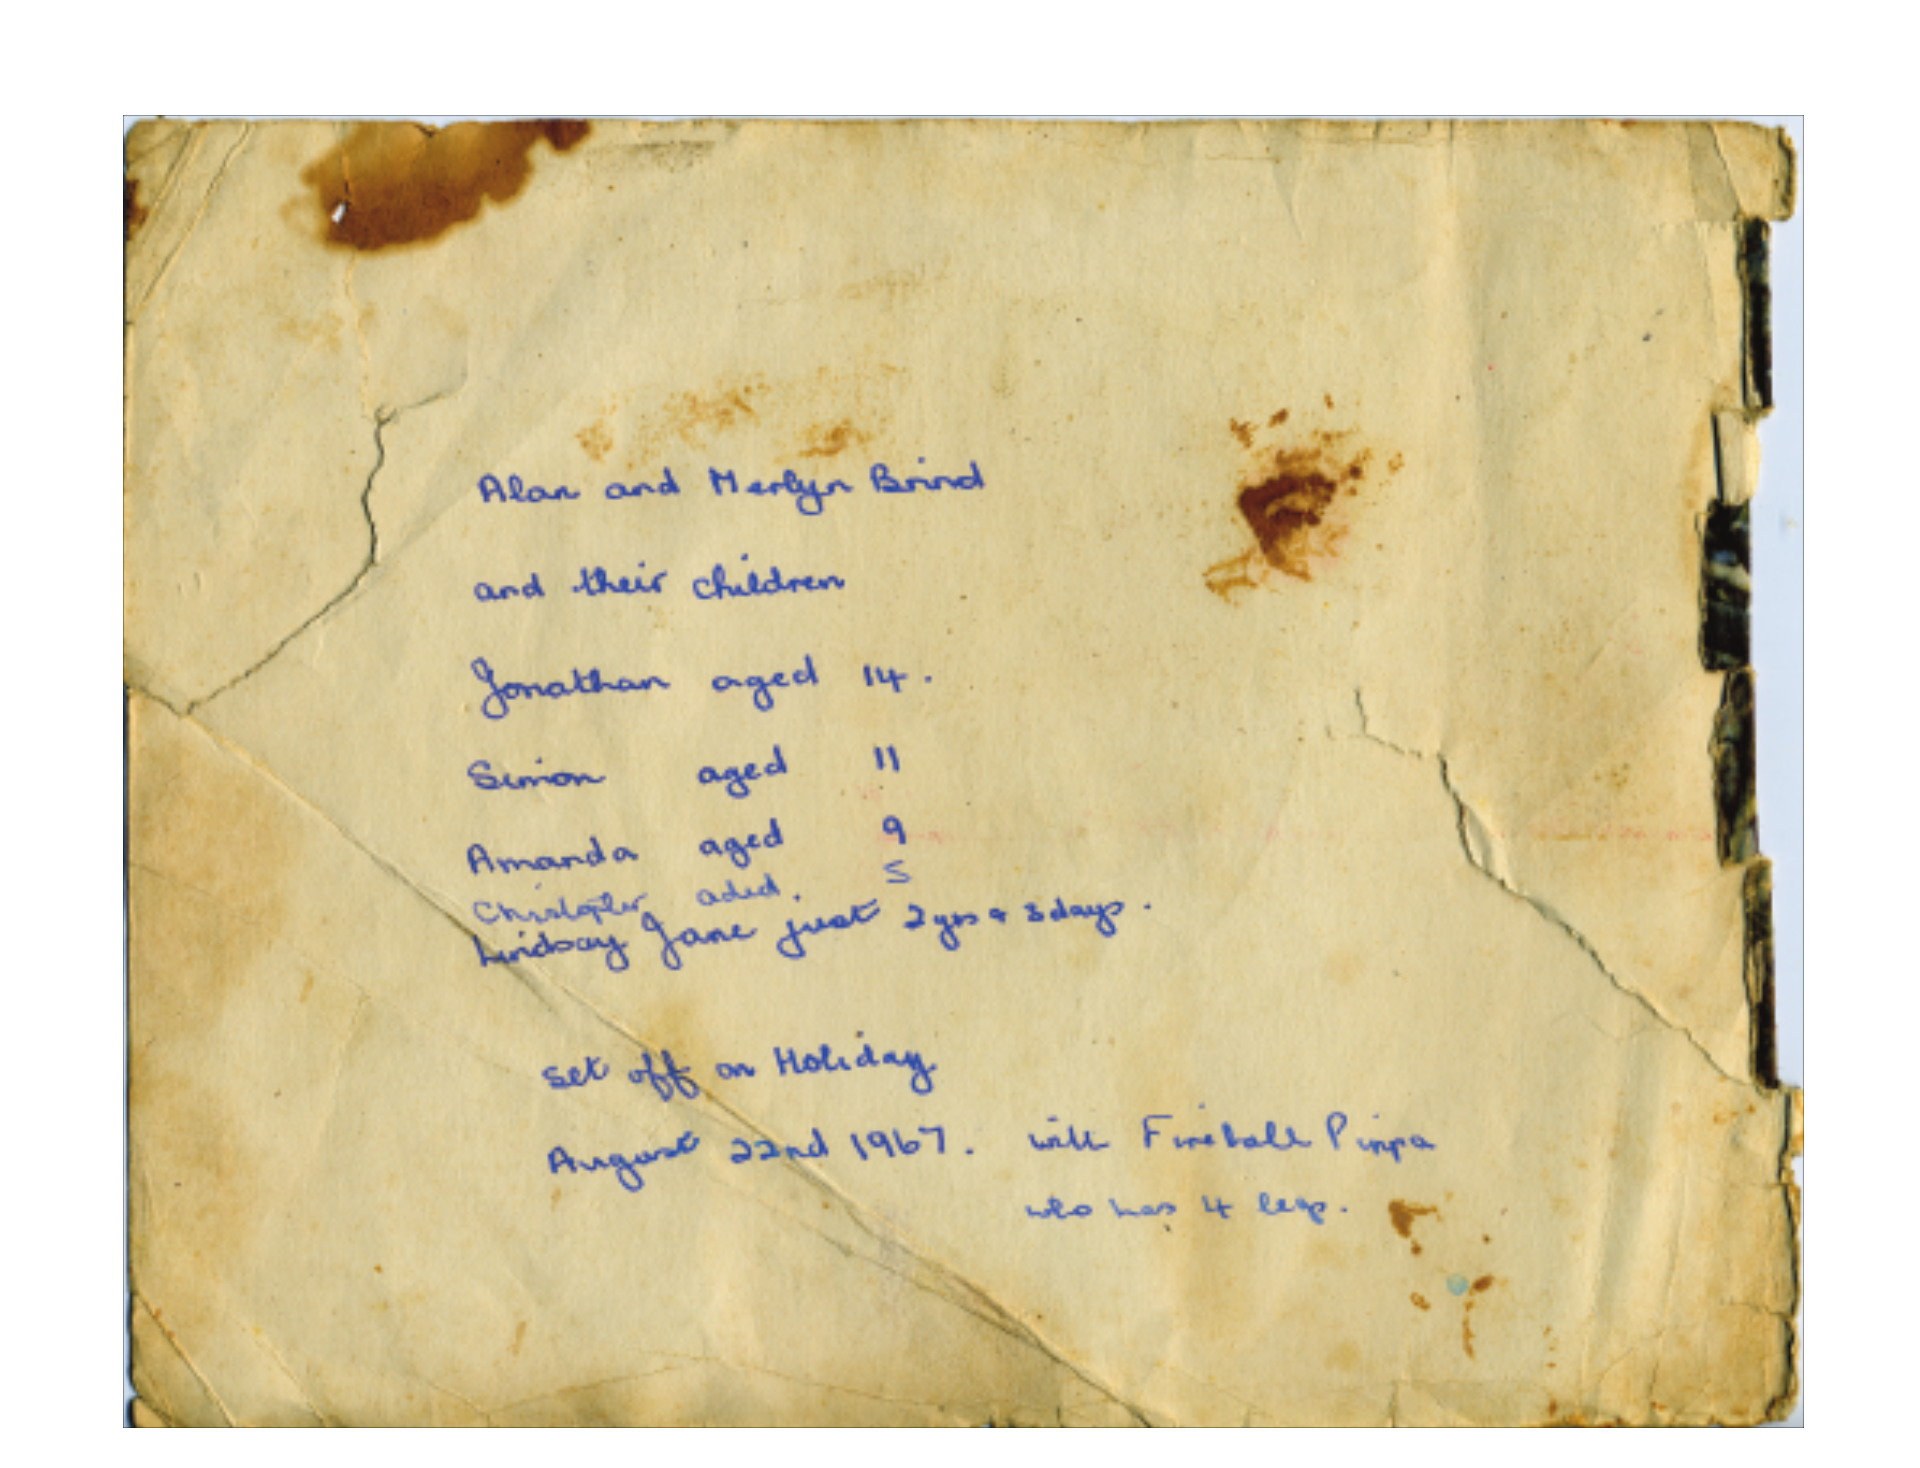 Alan and Merlyn Brind
and their children
Jonathan aged 14.
Simon aged 11
Amanda aged 9
Christopher aded. 5
Lindsay Jane just 2 yrs & 3 days.
set off on Holiday
August 22nd 1967. with Fireball Pippa
who has 4 legs.